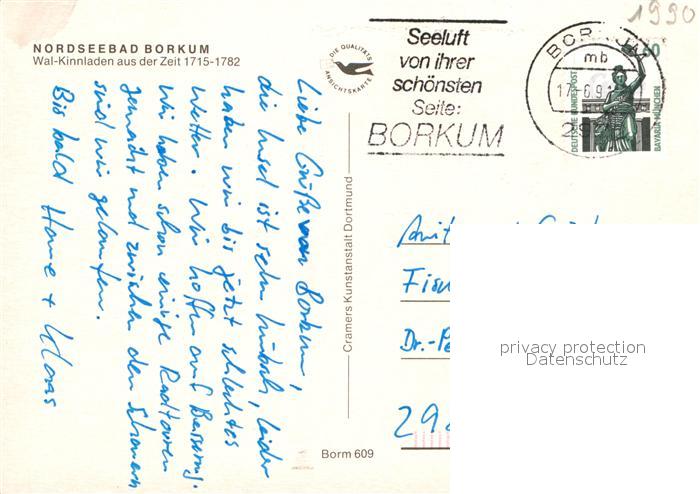 1990
NORDSEEBAD BORKUM
Wal-Kinnladen aus der Zeit 1715-1782
DIE QUALITÄTS
ANSICHTSKARTE
Seeluft
von ihrer
schönsten
Seite:
BORKUM
mb
60
DEUTSCHE BUNDESPOST
BAVARIA MÜNCHEN
Liebe Grüße von Borkum,
die Insel ist sehr hübsch, leider
haben wir bis jetzt schlechtes
Wetter. Wir hoffen auf Besserung.
Wir haben schon einige Radtouren
gemacht und zwischen den Schauern
sind wir gelaufen.
Bis bald
Cramers Kunstanstalt Dortmund
Borm 609
Dr.-Pe
privacy protection
Datenschutz